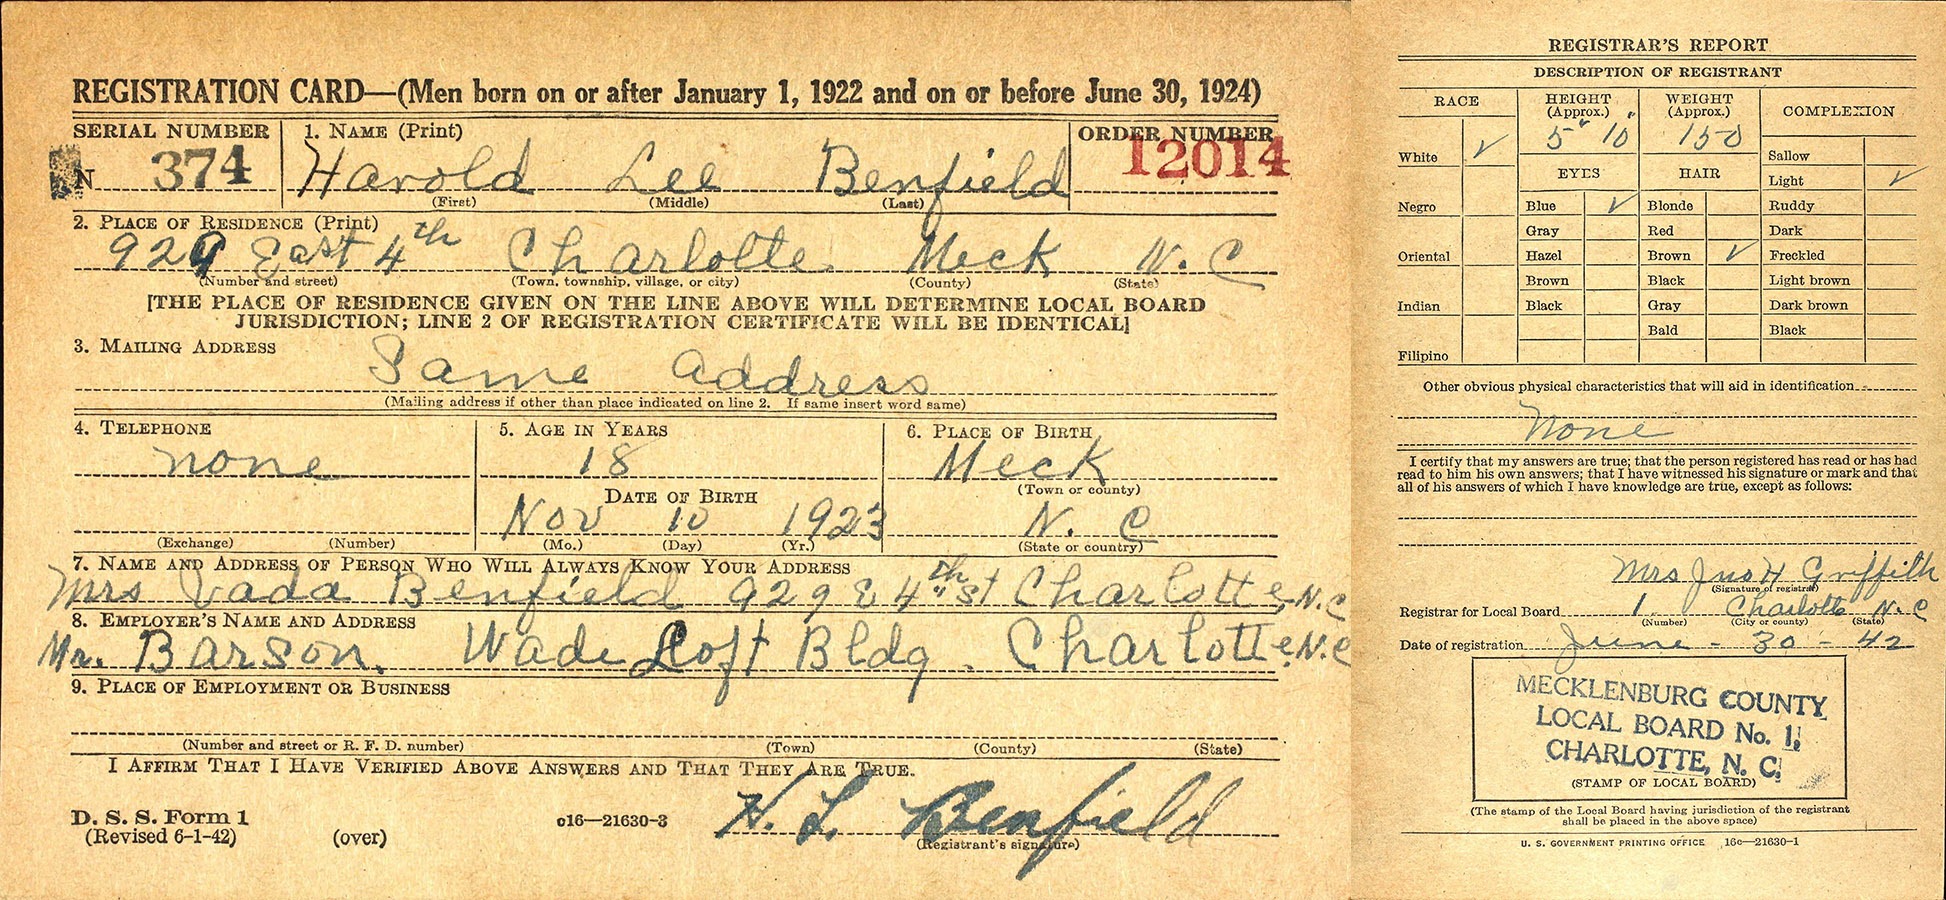 REGISTRATION CARD—(Men born on or after January 1, 1922 and on or before June 30, 1924)
SERIAL NUMBER
1. NAME (Print)
ORDER NUMBER
N 374
Harold Lee Benfield
12014
(First) (Middle) (Last)
2. PLACE OF RESIDENCE (Print)
929 East 4th Charlotte Meck N. C
(Number and street) (Town, township, village, or city) (County) (State)
[THE PLACE OF RESIDENCE GIVEN ON THE LINE ABOVE WILL DETERMINE LOCAL BOARD
JURISDICTION; LINE 2 OF REGISTRATION CERTIFICATE WILL BE IDENTICAL]
3. MAILING ADDRESS
Same address
(Mailing address if other than place indicated on line 2. If same insert word same)
4. TELEPHONE
none
(Exchange) (Number)
5. AGE IN YEARS
18
DATE OF BIRTH
Nov 10 1923
(Mo.) (Day) (Yr.)
6. PLACE OF BIRTH
Meck
(Town or county)
N. C
(State or country)
7. NAME AND ADDRESS OF PERSON WHO WILL ALWAYS KNOW YOUR ADDRESS
Mrs Vada Benfield 929 E 4th St Charlotte, N.C
8. EMPLOYER'S NAME AND ADDRESS
Mr. Barson. Wade Loft Bldg. Charlotte, N.C
9. PLACE OF EMPLOYMENT OR BUSINESS
(Number and street or R. F. D. number) (Town) (County) (State)
I AFFIRM THAT I HAVE VERIFIED ABOVE ANSWERS AND THAT THEY ARE TRUE.
H. L. Benfield
(Registrant's signature)
D. S. S. Form 1
(Revised 6-1-42)
(over)
c16—21630-3
REGISTRAR'S REPORT
DESCRIPTION OF REGISTRANT
RACE
White ✓
Negro
Oriental
Indian
Filipino
HEIGHT
(Approx.)
5' 10"
WEIGHT
(Approx.)
150
EYES
Blue ✓
Gray
Hazel
Brown
Black
HAIR
Blonde
Red
Brown ✓
Black
Gray
Bald
COMPLEXION
Sallow
Light ✓
Ruddy
Dark
Freckled
Light brown
Dark brown
Black
Other obvious physical characteristics that will aid in identification
None
I certify that my answers are true; that the person registered has read or has had
read to him his own answers; that I have witnessed his signature or mark and that
all of his answers of which I have knowledge are true, except as follows:
Mrs Jno H Griffith
(Signature of registrar)
Registrar for Local Board 1. Charlotte N. C
(Number) (City or county) (State)
Date of registration June - 30 - 42
MECKLENBURG COUNTY
LOCAL BOARD No. 1,
CHARLOTTE, N. C.
(STAMP OF LOCAL BOARD)
(The stamp of the Local Board having jurisdiction of the registrant
shall be placed in the above space)
U. S. GOVERNMENT PRINTING OFFICE 16c—21630-1